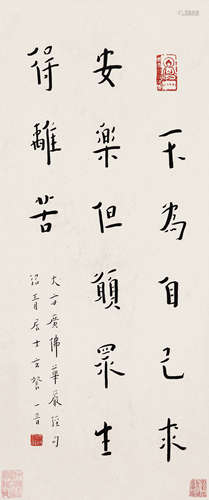 不為自己求
安樂但願眾生
得離苦
大方廣佛華嚴經句
沼青居士玄髮一音